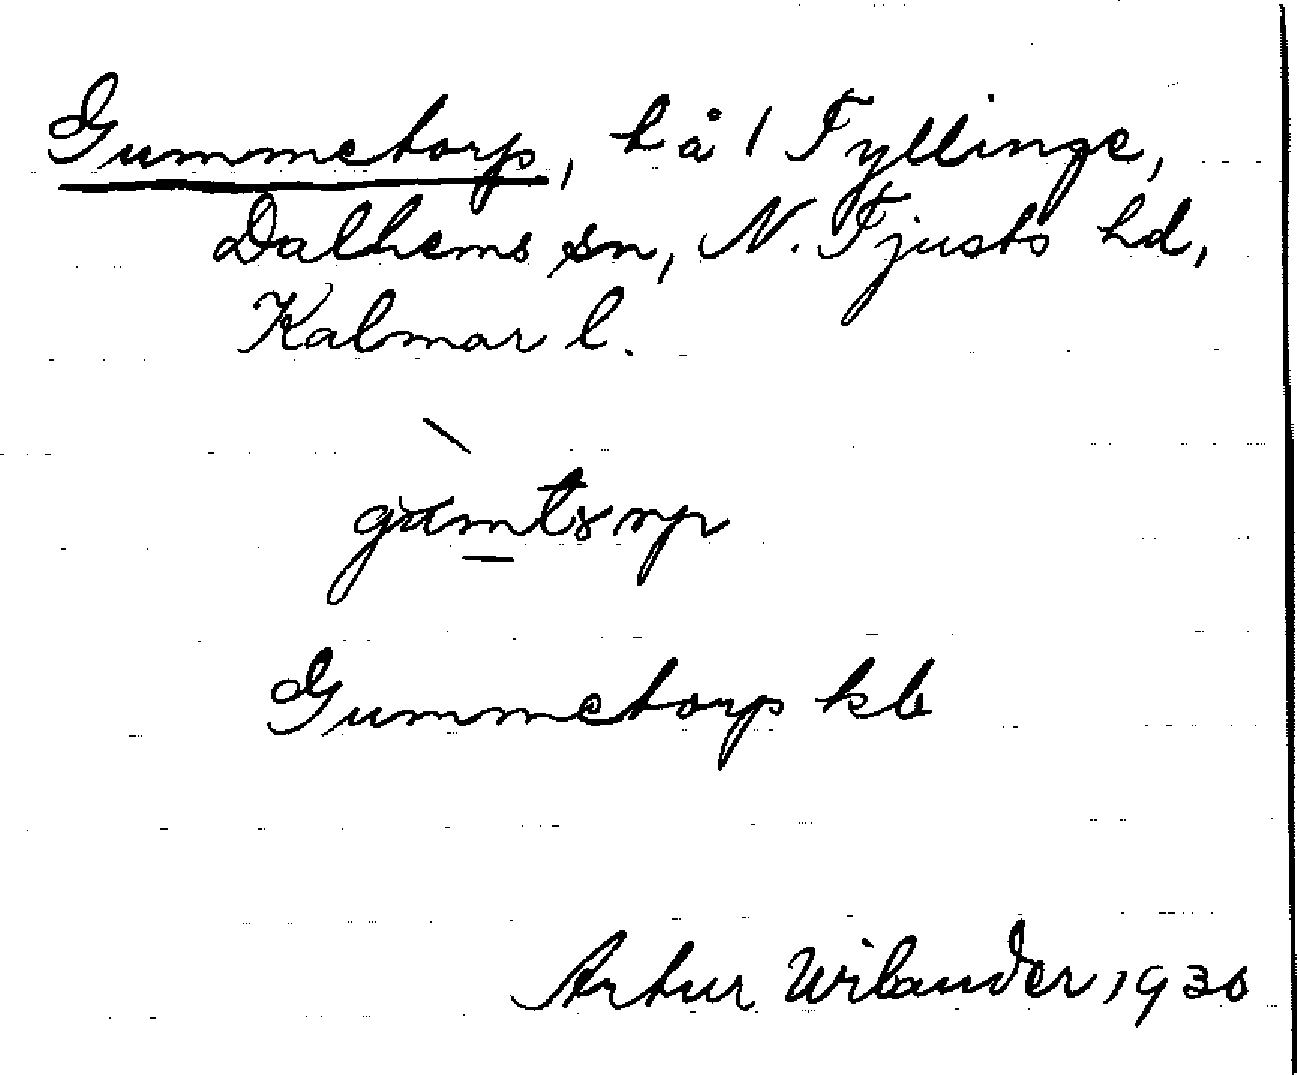 Gummetorp, h å 1 Fyllinge,
Dalhems sn, N. Tjusts hd,
Kalmar l.
Gummetorp kb
Artur Wilander, 1930